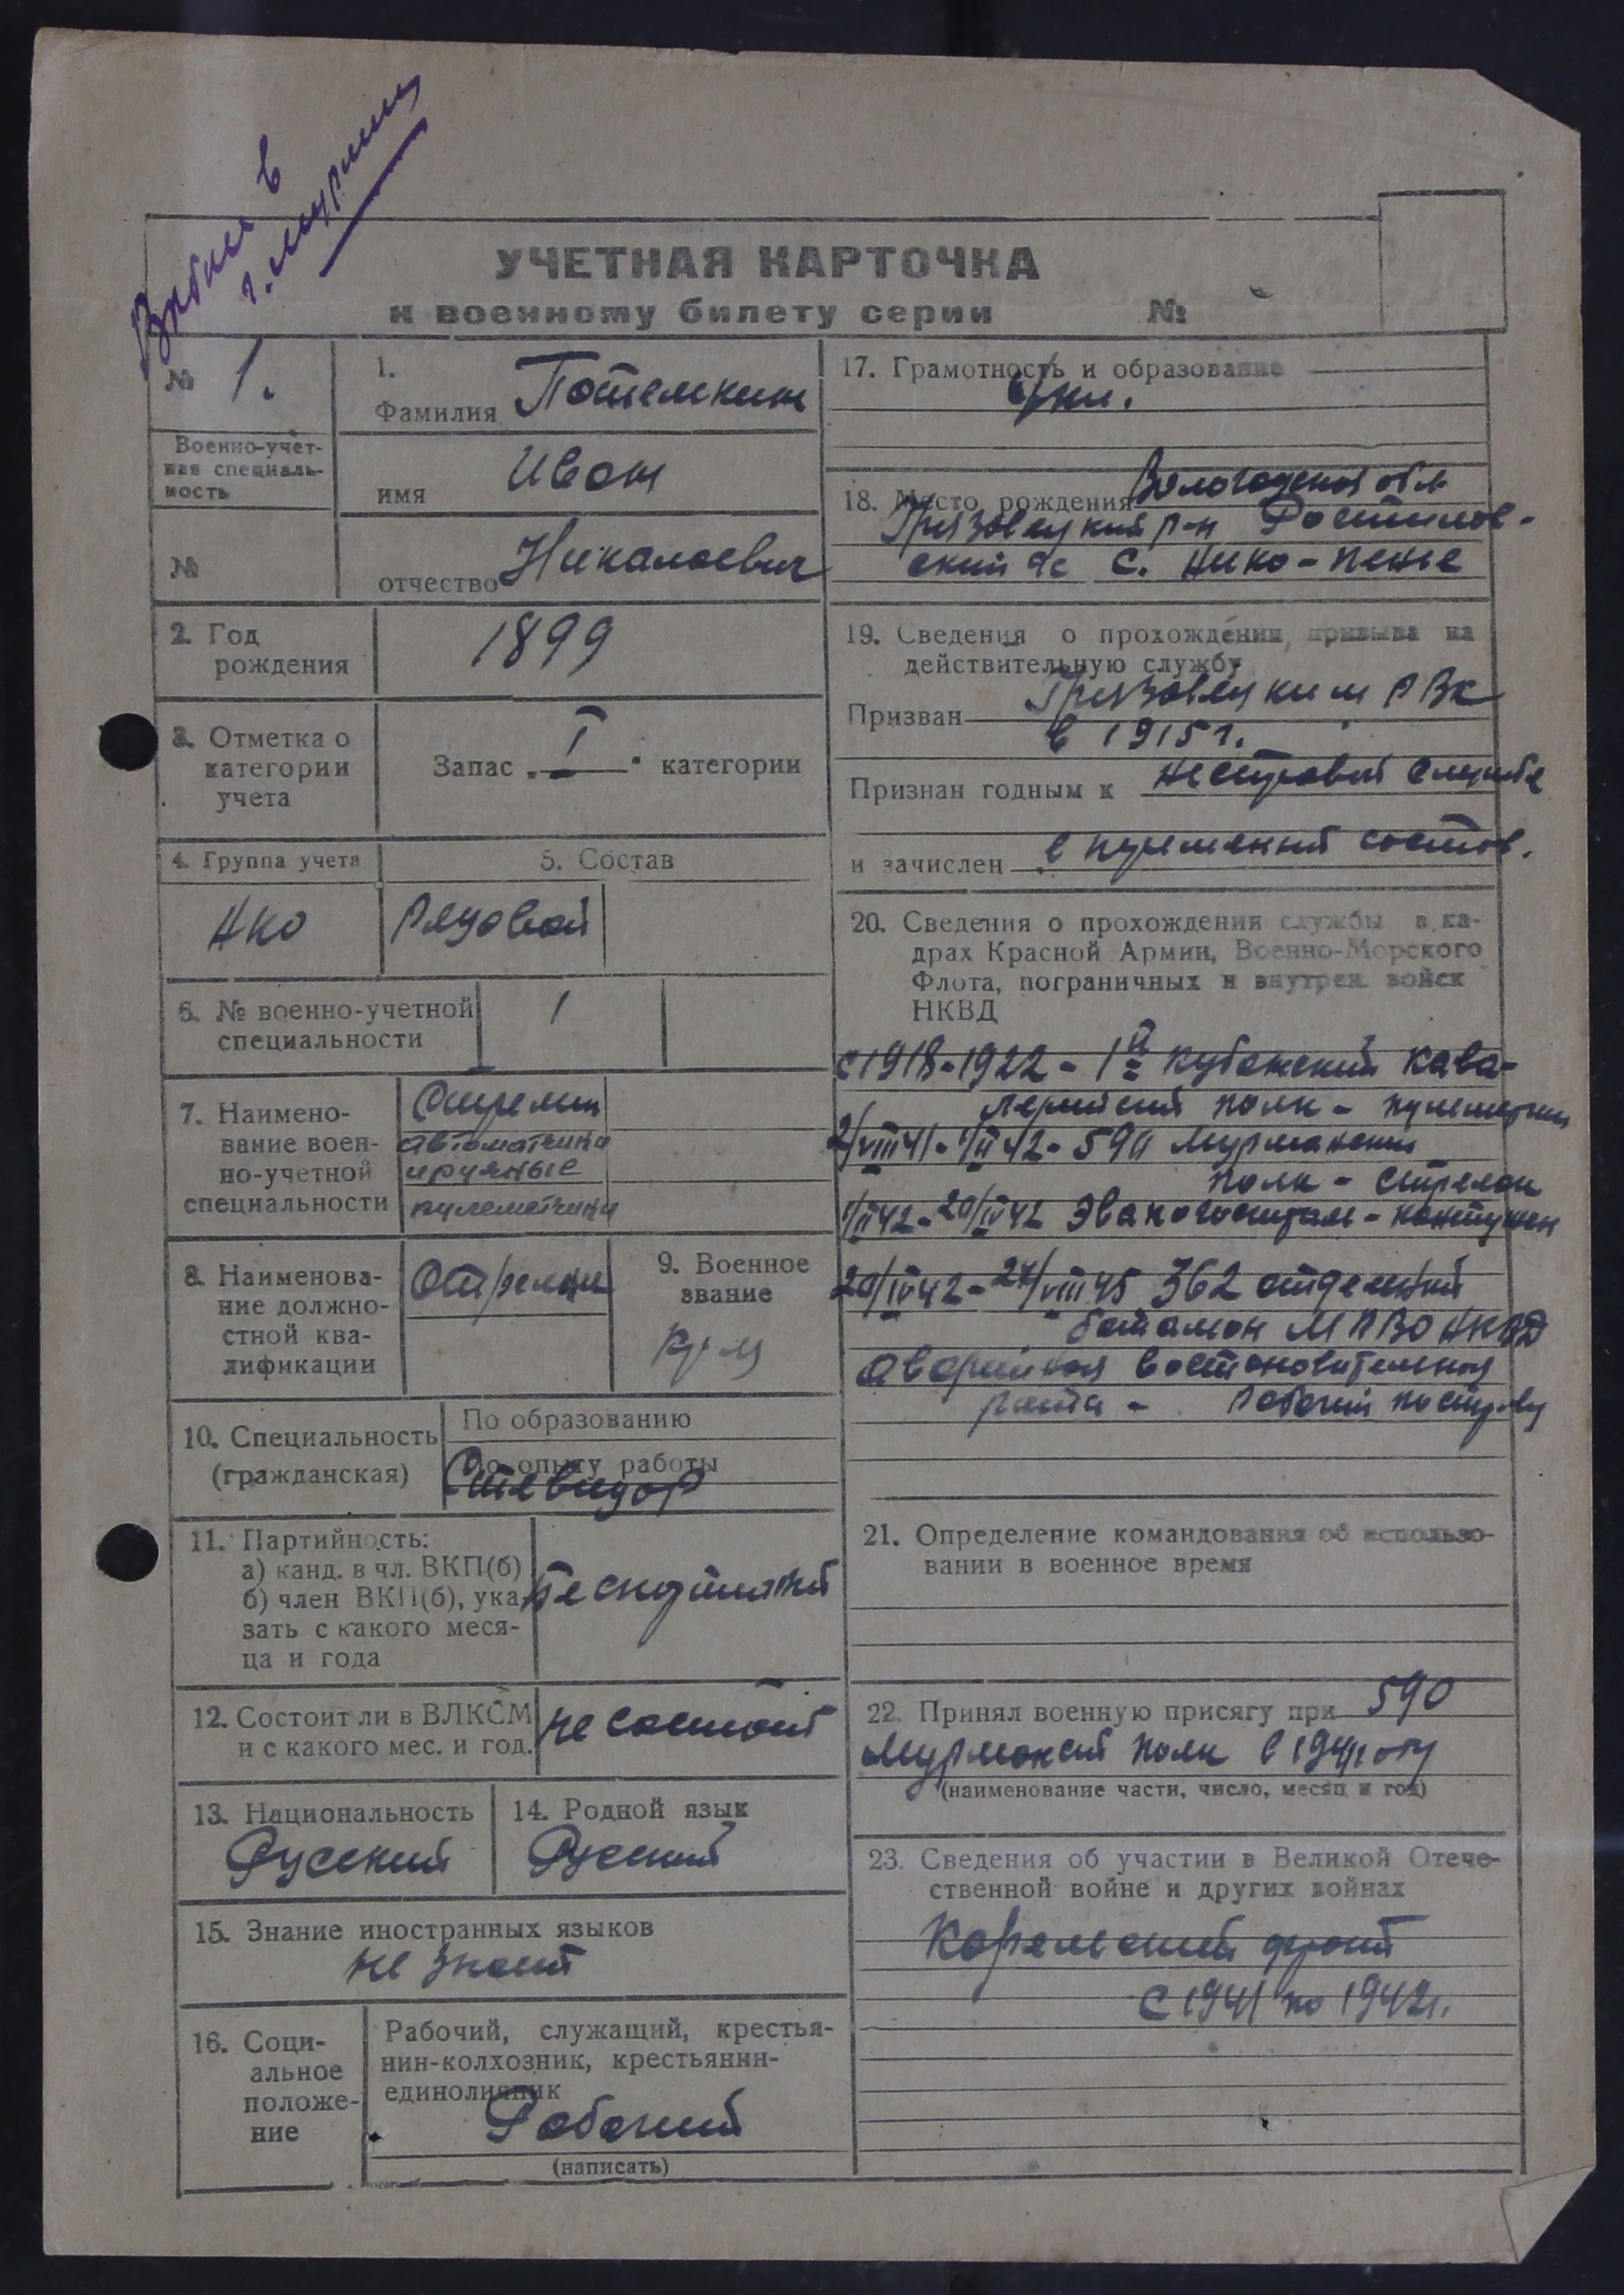 Выбыл в
г. Мурманск
УЧЕТНАЯ КАРТОЧКА
к военному билету серии №
№ 1.
Военно-учет-
ная специаль-
ность
№
1.
Фамилия Потемкин
имя Иван
отчество Николаевич
2. Год
рождения
1899
3. Отметка о
категории
учета
Запас „ I " категории
4. Группа учета
5. Состав
НКО
Рядовой
6. № военно-учетной
специальности
1
7. Наимено-
вание воен-
но-учетной
специальности
Стрелки
автоматчики
и ручные
пулеметчики
8. Наименова-
ние должно-
стной ква-
лификации
Стрелки
9. Военное
звание
кр-ц
10. Специальность
(гражданская)
По образованию
По опыту работы
Стевидор
11. Партийность:
а) канд. в чл. ВКП(б)
б) член ВКП(б), ука-
зать с какого меся-
ца и года
беспартийный
12. Состоит ли в ВЛКСМ
и с какого мес. и год.
не состоит
13. Национальность
Русский
14. Родной язык
Русский
15. Знание иностранных языков
не знает
16. Соци-
альное
положе-
ние
Рабочий, служащий, крестья-
нин-колхозник, крестьянин-
единоличник
Рабочий
(написать)
17. Грамотность и образование
кл.
18. Место рождения Вологодская обл
Грязовецкий р-н Ростилов-
ский с/с с. Нико-пенье
19. Сведения о прохождении, призыва на
действительную службу
Призван Грязовецким РВК
в 1915 г.
Признан годным к нестровой службе
и зачислен в пременый состав.
20. Сведения о прохождения службы в ка-
драх Красной Армии, Военно-Морского
Флота, пограничных и внутрен. войск
НКВД
с 1918-1922 - 1й Кубанский кава-
лерийский полк - пулеметчик
2/VIII 41-1/II 42- 590 Мурманский
полк - стрелок
1/II 42-20/IV 42 Эвакогоспиталь - контужен
20/IV 42-24/VIII 45 362 отдельный
батальон МПВО НКВД
аварийная востановительная
рота - рабочий по стр-ву
21. Определение командования об использо-
вании в военное время
22. Принял военную присягу при 590
Мурманский полк в 1941 году
(наименование части, число, месяц и год)
23. Сведения об участии в Великой Отече-
ственной войне и других войнах
Карельский фронт
с 1941 по 1942 г.